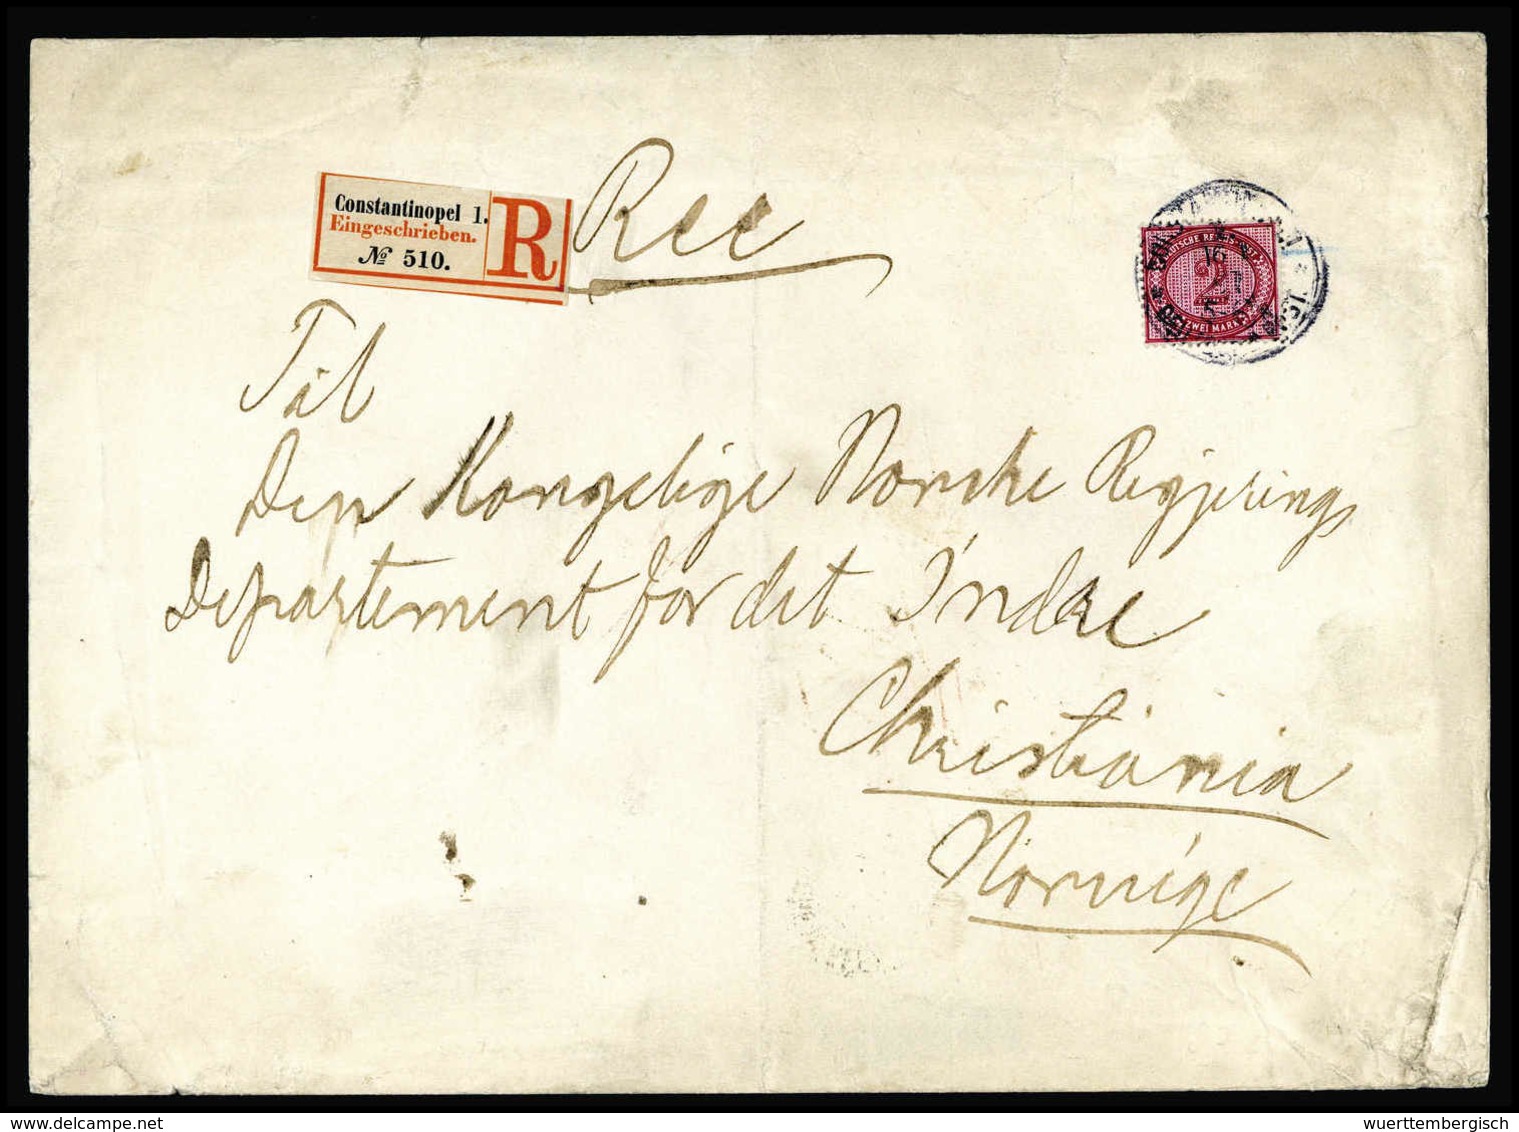 Constantinopel 1.
Eingeschrieben.
№ 510.
R
Rec
2
ZWEI MARK
Til
Den Kongelige Norske Regjerings
Departement for det Indre
Christiania
Norvége
delcampe.net
wuerttembergisch